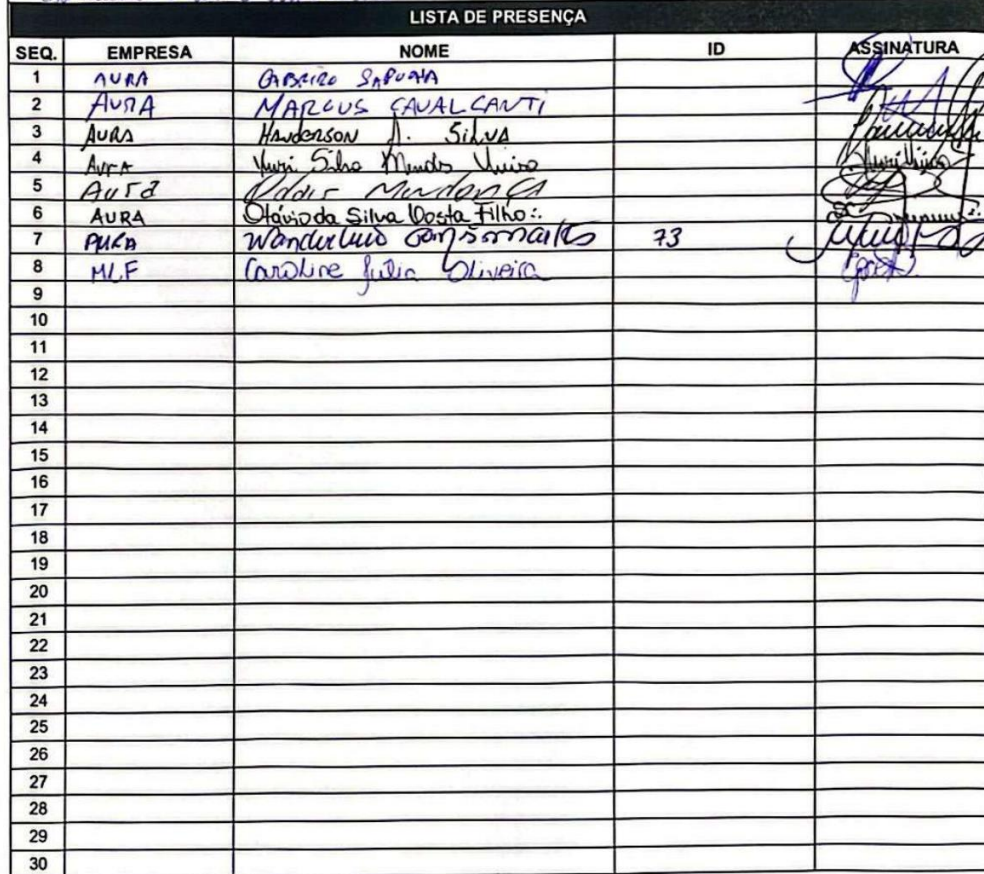 LISTA DE PRESENÇA
SEQ. EMPRESA NOME ID ASSINATURA
1 AURA
2 AURA MARCUS CAVALCANTI
3 AURA HANDERSON A. SILVA
4 AURA Yuri Silva Mendes Vieira
5 Aura Mendonça
6 AURA Otávio da Silva Costa Filho:.
7 AURA 73
8 MLF Caroline Julia Oliveira
9
10
11
12
13
14
15
16
17
18
19
20
21
22
23
24
25
26
27
28
29
30